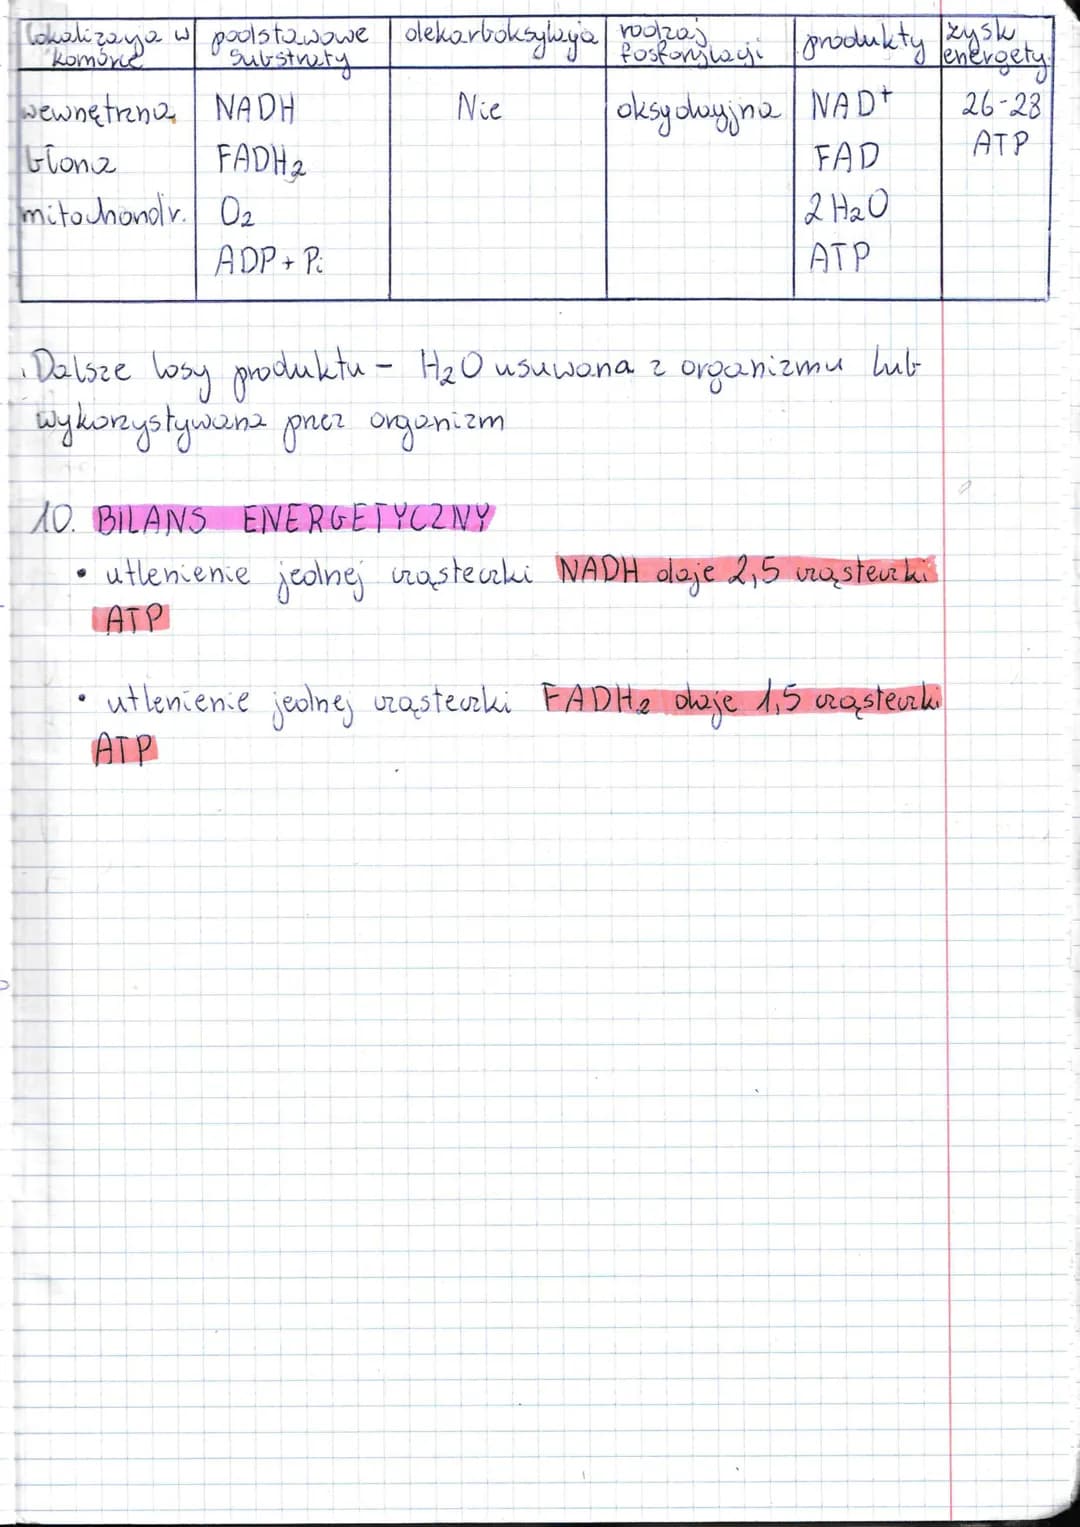 lokalizacja w komórce | podstawowe substraty | dekarboksylacja | rodzaj fosforylacji | produkty | zysk energety.
wewnętrzna | NADH | Nie | oksydacyjna | NAD+ | 26-28
błona | FADH2 | FAD | ATP
mitochondr. | O2 | 2H2O
ADP + Pi | ATP
Dalsze losy produktu - H2O usuwana z organizmu lub
wykorzystywana przez organizm
10. BILANS ENERGETYCZNY
• utlenienie jednej cząsteczki NADH daje 2,5 cząsteczki
ATP
• utlenienie jednej cząsteczki FADH2 daje 1,5 cząsteczki
ATP